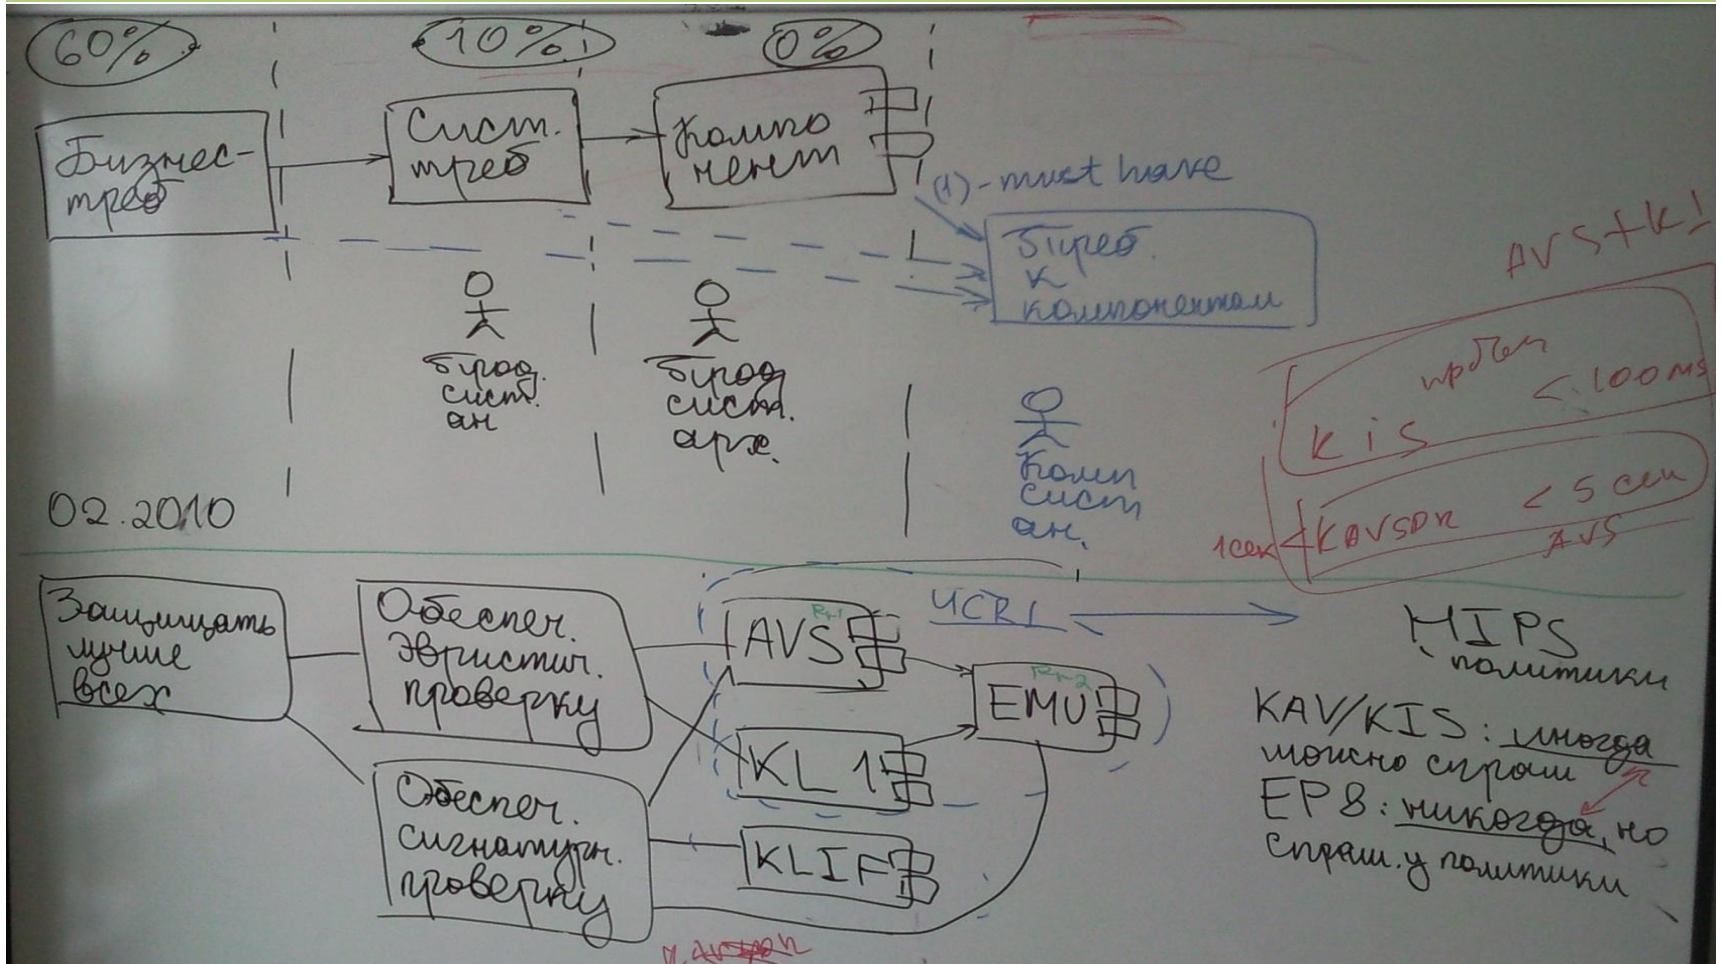 60%
10%
0%
Бизнес-
треб
Сист.
треб
Компо
нент
(1) - must have
Треб.
к
компонентам
AVS + K
прод.
сист.
ан
прод
сист.
арх.
Комп
сист
ан.
KiS < 100 ms
1 сек
KAVSDK < 5 сек
AVS
02.2010
Защищать
лучше
всех
Обеспеч.
эвристич.
проверку
Обеспеч.
сигнатурн.
проверку
AVS
KL1
KLIF
EMU
HIPS
политики
KAV/KIS: иногда
можно спраш
EP8: никогда, но
спраш. у политики